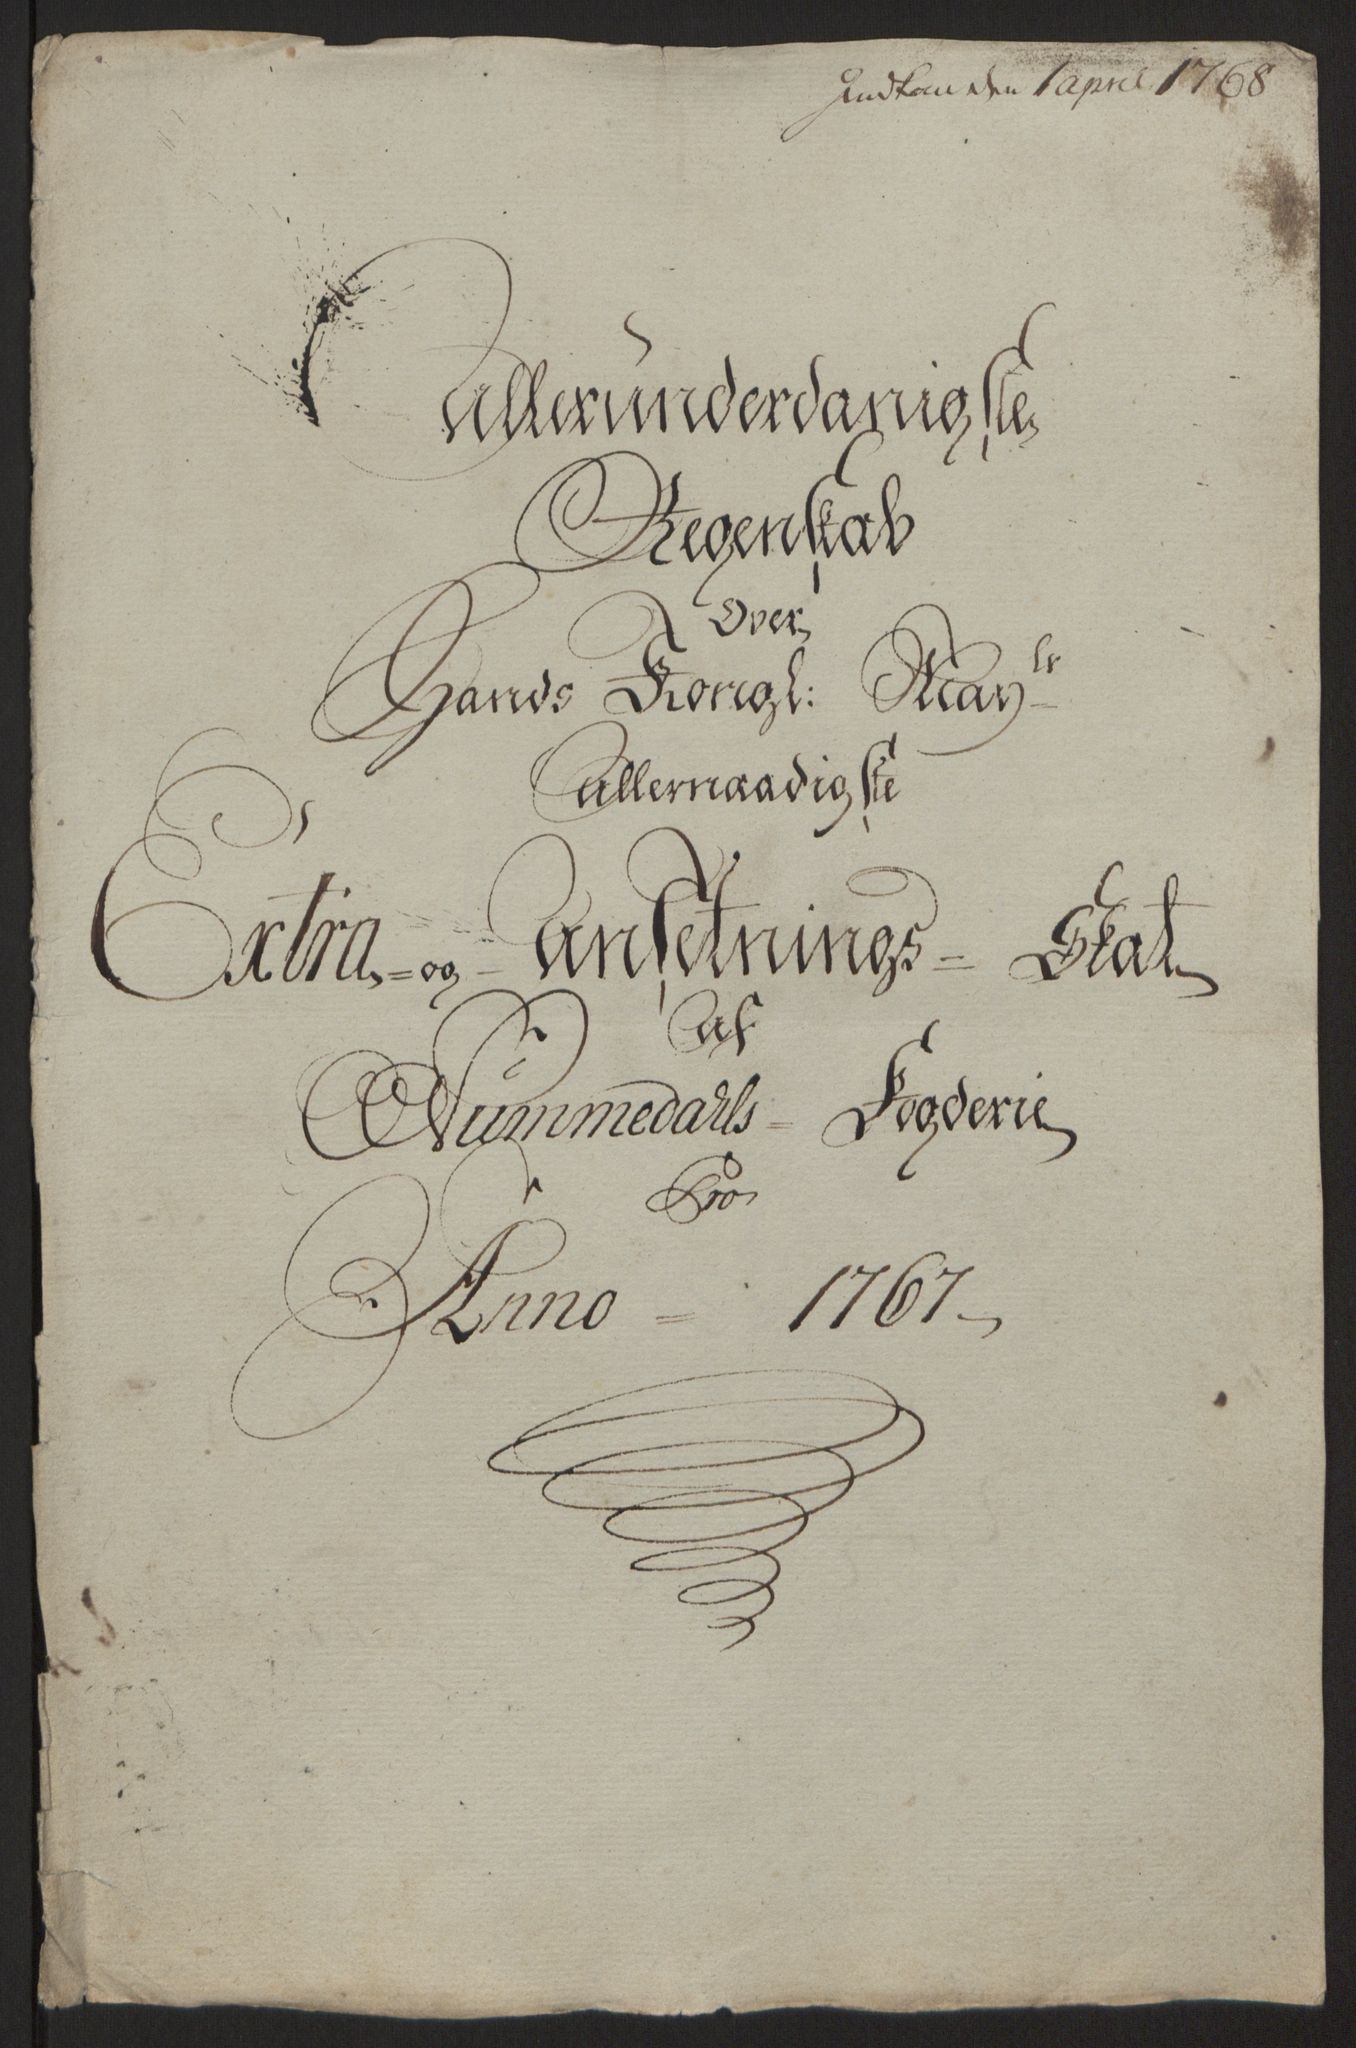 Indkom den 1 april 1768
Alleründerdanigste
Regenskab
Over
Hands Kongl: May<sup>ts</sup>
Allernaadigste
Extra = og = Ansetnings = Skat
Af
Nummedahls = Fogderie
Pro
Anno = 1767